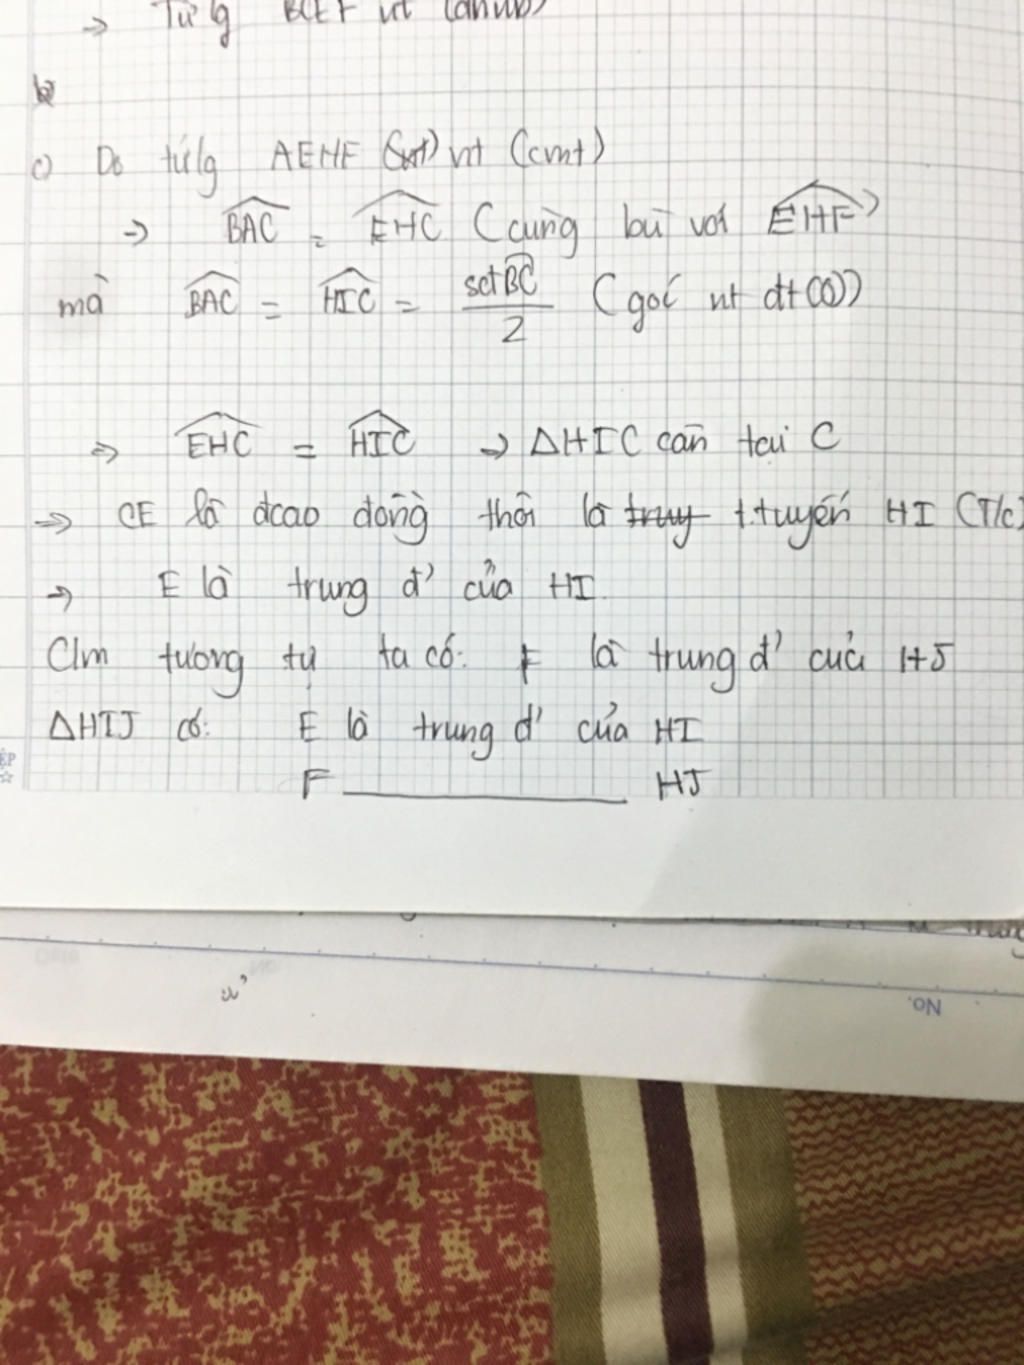 → Tứ lg BCEF nt (dhnb)
c) Do tứ lg AEHF nt (cmt)
→ BAC = EHC (cùng bù với EHF)
mà BAC = HIC = sđBC/2 (góc nt đt(O))
→ EHC = HIC → ΔHIC cân tại C
→ CE là đcao đồng thời là t.tuyến HI (T/c)
→ E là trung đ' của HI.
C/m tương tự ta có: F là trung đ' của HJ
ΔHIJ có: E là trung đ' của HI
F ———— HJ
No.